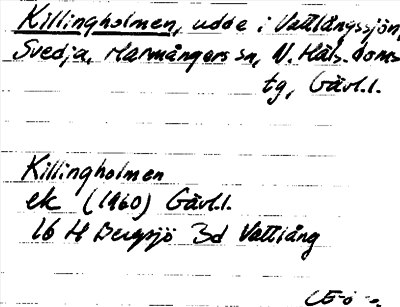 Killingholmen, udde i Vattlångssjön,
Svedja, Harmångers sn, N. Häls. doms
tg, Gävl.l.
Killingholmen
ek (1960) Gävl.l.
16 H Bergsjö 3d Vattlång